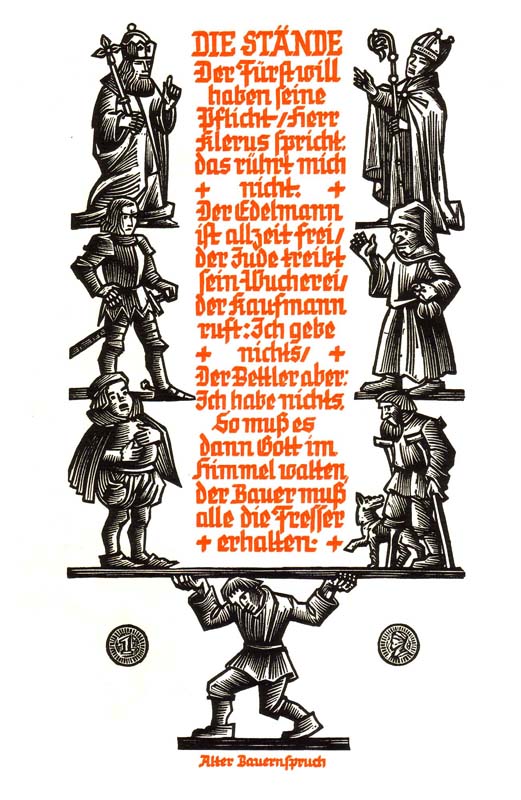 DIE STÄNDE
Der Fürst will
haben seine
Pflicht / Herr
Klerus spricht:
das rührt mich
+ nicht. +
Der Edelmann
ist allzeit frei /
der Jude treibt
sein Wucherei /
der Kaufmann
ruft: Ich gebe
+ nichts / +
Der Bettler aber:
Ich habe nichts.
So muß es
dann Gott im
Himmel walten,
der Bauer muß
alle die Fresser
+ erhalten. +
1
Alter Bauernspruch